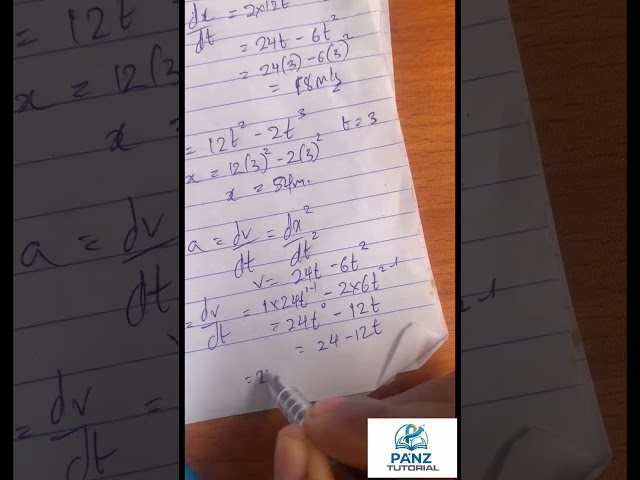 dx/dt = 2x12t
= 24t - 6t²
= 24(3) - 6(3)²
= 18m/s
= 12t² - 2t³ t = 3
x = 12(3)² - 2(3)²
x = 54m.
a = dv/dt = dx²/dt²
v = 24t - 6t²
= dv/dt = 1x24t¹⁻¹ - 2x6t²⁻¹
= 24t° - 12t
= 24 - 12t
= 2
PANZ
TUTORIAL